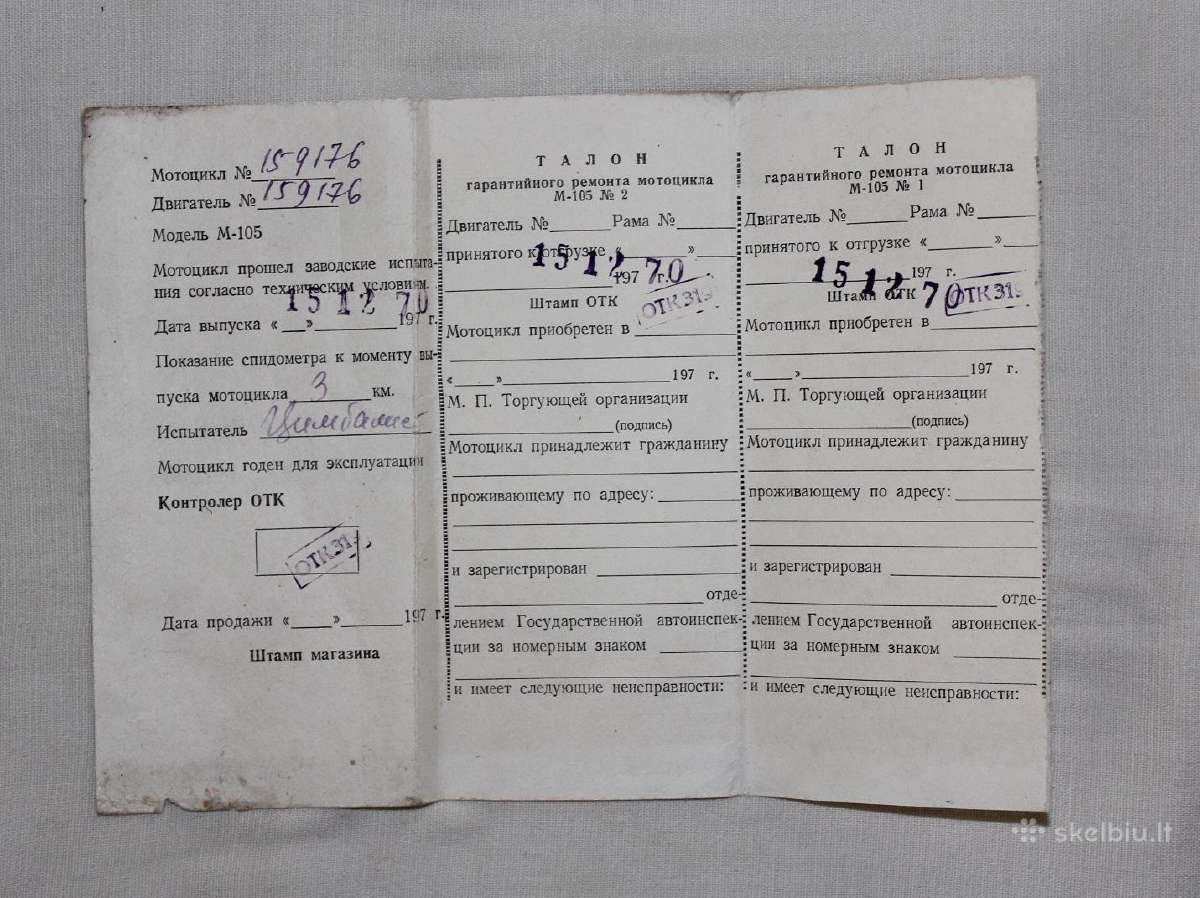 Мотоцикл № 159176
Двигатель № 159176
Модель М-105
Мотоцикл прошел заводские испыта-
ния согласно техническим условиям.
15 12 70
Дата выпуска «___»________197 г.
Показание спидометра к моменту вы-
пуска мотоцикла 3 км.
Испытатель
Мотоцикл годен для эксплуатации
Контролер ОТК
ОТК 31
Дата продажи «____»______197 г.
Штамп магазина
ТАЛОН
гарантийного ремонта мотоцикла
М-105 № 2
Двигатель №______ Рама №______
принятого к отгрузке «______»___
15 12 70
197 г.
Штамп ОТК
ОТК 31
Мотоцикл приобретен в
«____»________________197 г.
М. П. Торгующей организации
(подпись)
Мотоцикл принадлежит гражданину
проживающему по адресу:
и зарегистрирован
отде-
лением Государственной автоинспек-
ции за номерным знаком
и имеет следующие неисправности:
ТАЛОН
гарантийного ремонта мотоцикла
М-105 № 1
Двигатель №______ Рама №______
принятого к отгрузке «______»___
15 12 70
197 г.
Штамп ОТК
ОТК 31
Мотоцикл приобретен в
«____»________________197 г.
М. П. Торгующей организации
(подпись)
Мотоцикл принадлежит гражданину
проживающему по адресу:
и зарегистрирован
отде-
лением Государственной автоинспек-
ции за номерным знаком
и имеет следующие неисправности:
skelbiu.lt